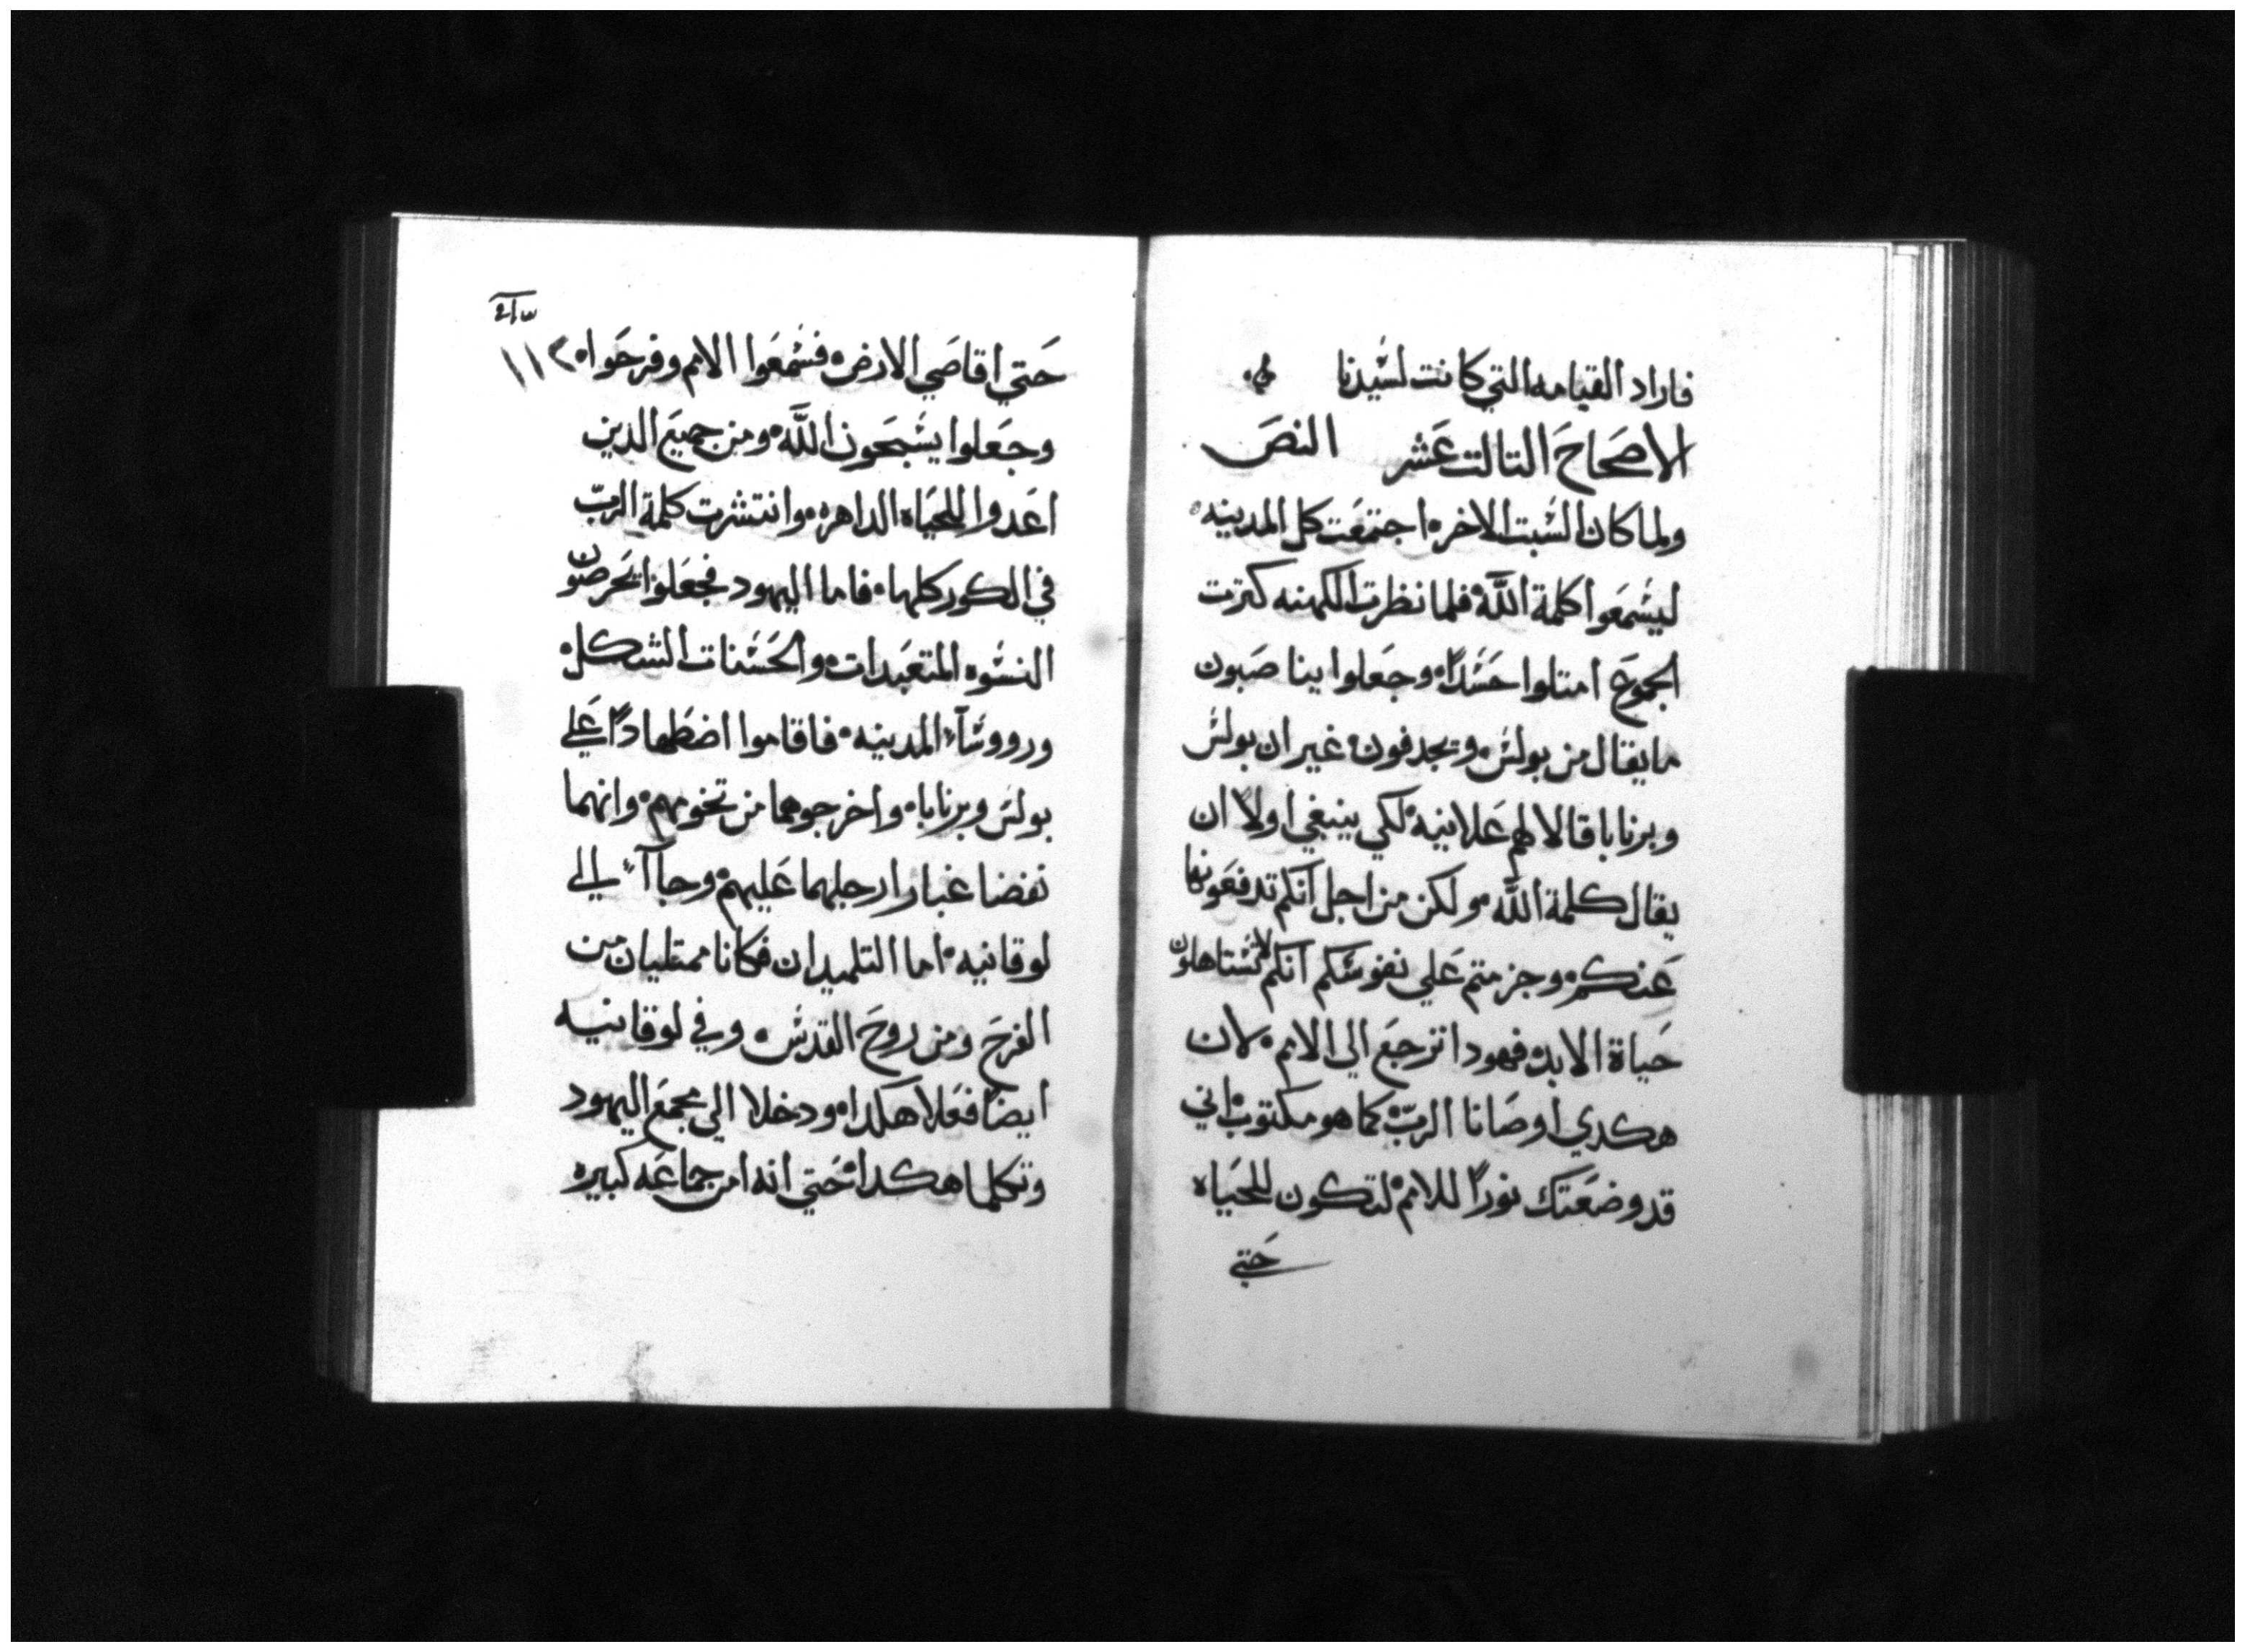 فاراد القيامه التي كانت لسيدنا
الاصحاح التالت عشر النص
ولما كان السبت الاخره اجتمعت كل المدينه
ليسمعوا كلمة الله فلما نظرت الكهنه كترت
الجموع امتلوا حسداً وجعلوا يناصبون
ما يقال من بولس ويجدفون غير ان بولس
وبرنابا قالا لهم علانيه لكي ينبغي اولاً ان
يقال كلمة الله ولكن من اجل انكم تدفعونها
عنكم وجزمتم علي نفوسكم انكم لا تستاهلون
حياة الابد فهودا نرجع الي الامم لان
هكدي اوصانا الرب كما هو مكتوب اني
قد وضعتك نوراً للامم لتكون للحياه
حتي
١١٢
حتي اقاصي الارض فسمعوا الامم وفرحوا
وجعلوا يسبحون الله ومن جميع الدين
اعدوا للحياه الداهره وانتشرت كلمة الرب
في الكور كلها فاما اليهود فجعلوا يحرصون
النسوه المتعبدات والحسنات الشكل
وروساء المدينه فاقاموا اضطهاداً علي
بولس وبرنابا واخرجوهما من تخومهم وانهما
نفضا غبار ارجلهما عليهم وجاآء الي
لوقانيه اما التلميدان فكانا ممتليان من
الفرح ومن روح القدس وفي لوقانيه
ايضاً فعلا هكدا ودخلا الي مجمع اليهود
وتكلما هكدا حتي انه امن جماعه كبيره